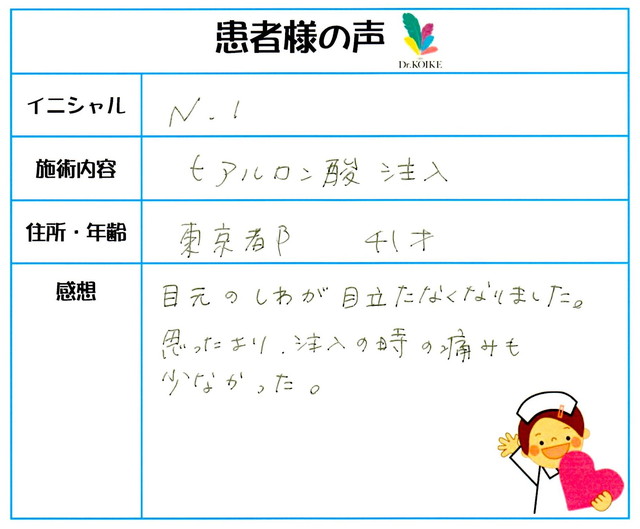 患者様の声
Dr.KOIKE
イニシャル
N.I
施術内容
ヒアルロン酸 注入
住所・年齢
東京都 41才
感想
目元のしわが目立たなくなりました。
思ったより、注入の時の痛みも
少なかった。